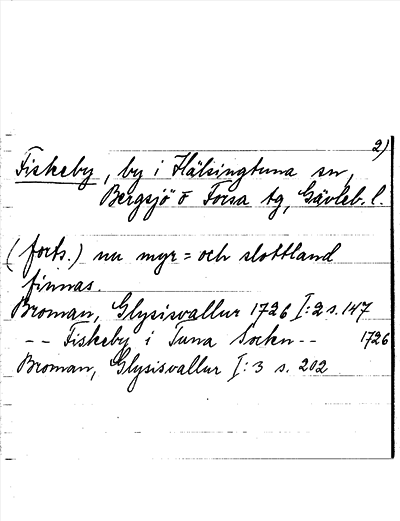 2)
Fiskeby, by i Hälsingtuna sn,
Bergsjö o Forsa tg, Gävleb. l.
(forts.) nu myr= och slottland
finnas.
Broman, Glysisvallur 1726 I:2 s. 147
-- Fiskeby i Tuna Sockn -- 1726
Broman, Glysisvallur I:3 s. 202